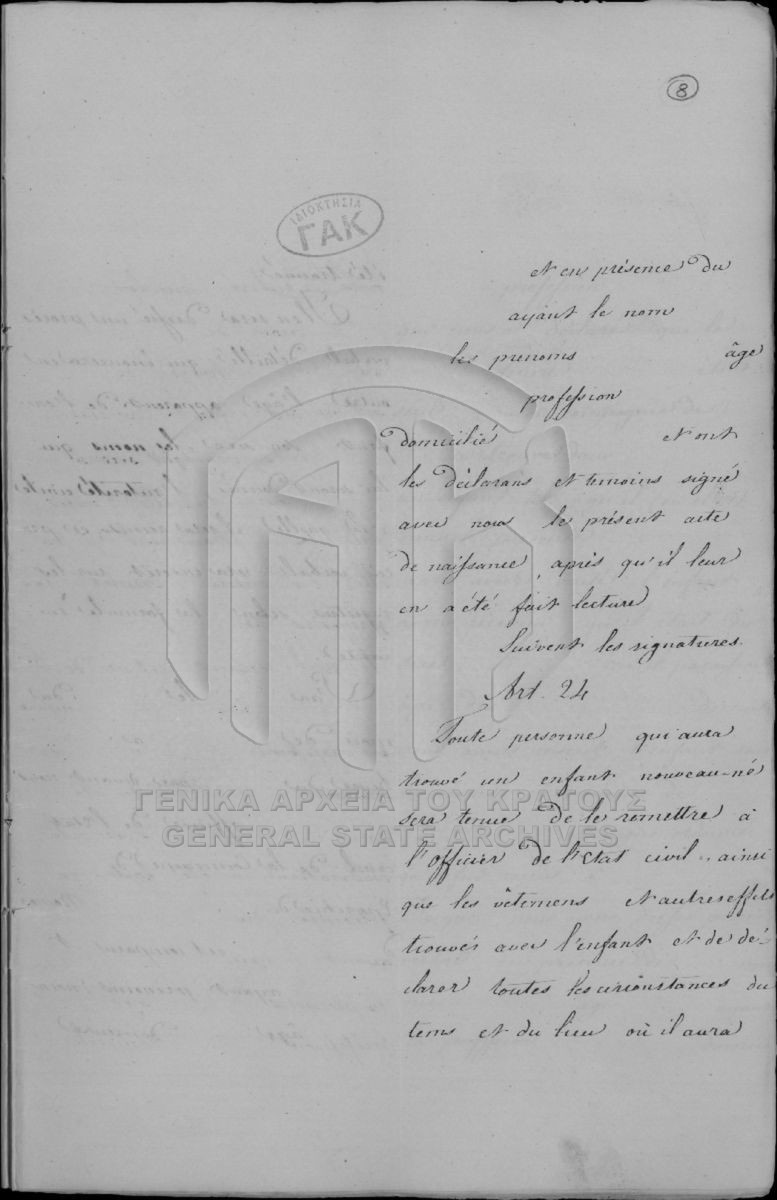 8
ΙΔΙΟΚΤΗΣΙΑ
ΓΑΚ
et en présence du
ayant le nom
les prenoms âge
profession
domicilié et ont
les déclarans et temoins signé
avec nous le présent acte
de naissance, après qu'il leur
en a été fait lecture
Suivent les signatures.
Art. 24
Toute personne qui aura
trouvé un enfant nouveau-né
sera tenue de le remettre à
l'officier de l'Etat civil, ainsi
que les vêtemens et autres effets
trouvés avec l'enfant et de dé-
clarer toutes les circonstances du
tems et du lieu où il aura
ΓΕΝΙΚΑ ΑΡΧΕΙΑ ΤΟΥ ΚΡΑΤΟΥΣ
GENERAL STATE ARCHIVES